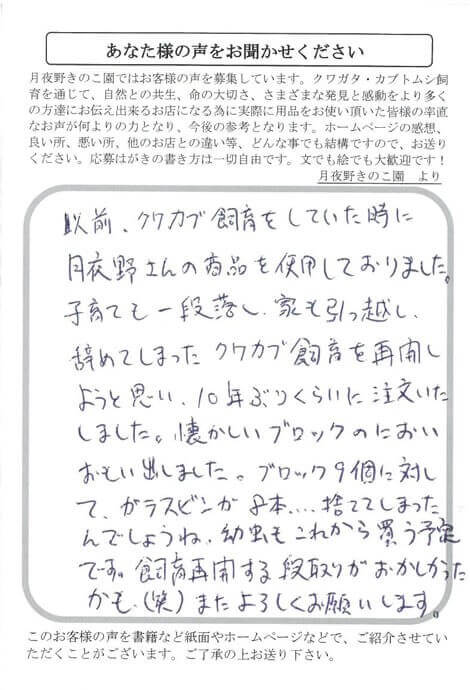 あなた様の声をお聞かせください
月夜野きのこ園ではお客様の声を募集しています。クワガタ・カブトムシ飼
育を通じて、自然との共生、命の大切さ、さまざまな発見と感動をより多く
の方達にお伝え出来るお店になる為に実際に用品をお使い頂いた皆様の率直
なお声が何よりの力となり、今後の参考となります。ホームページの感想、
良い所、悪い所、他のお店との違い等、どんな事でも結構ですので、お送り
ください。応募はがきの書き方は一切自由です。文でも絵でも大歓迎です！
月夜野きのこ園 より
以前、クワカブ飼育をしていた時に
月夜野さんの商品を使用しておりました。
子育ても一段落し、家も引っ越し、
辞めてしまったクワカブ飼育を再開し
ようと思い、10年ぶりくらいに注文いた
しました。懐かしいブロックのにおい
おもい出しました。ブロック9個に対し
て、ガラスビンが8本....捨ててしまった
んでしょうね、幼虫もこれから買う予定
です。飼育再開する段取りがおかしかった
かも、(笑)またよろしくお願いします。
このお客様の声を書籍など紙面やホームページなどで、ご紹介させてい
ただくことがございます。ご了承の上お送り下さい。